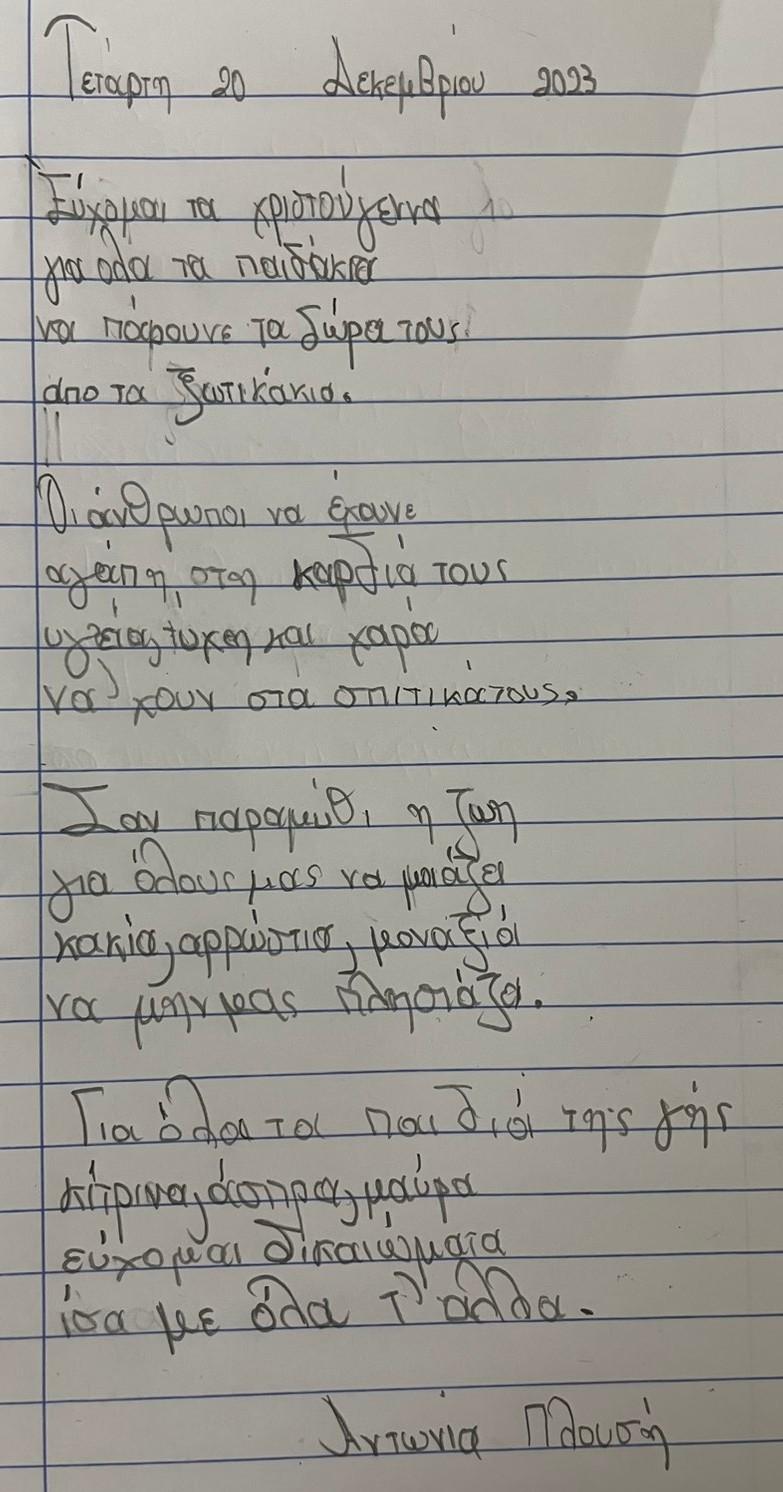 Τετάρτη 20 Δεκεμβρίου 2023
Εύχομαι τα χριστούγεννα
για όλα τα παιδάκια
να πάρουνε τα δώρα τους
απο τα ξωτικάκια.
Οι άνθρωποι να έχουνε
αγάπη στη καρδιά τους
υγεία, τύχη και χαρά
να'χουν στα σπιτικάτους.
Σαν παραμύθι η ζωη
για όλους μας να μοιάζει
κακία, αρρώστια, μοναξιά
να μην μας πλησιάζει.
Για όλα τα παιδιά της γής
κίτρινα, άσπρα, μαύρα
εύχομαι δικαιώματα
ίσα με όλα τ'άλλα.
Αντωνία Πλουσή